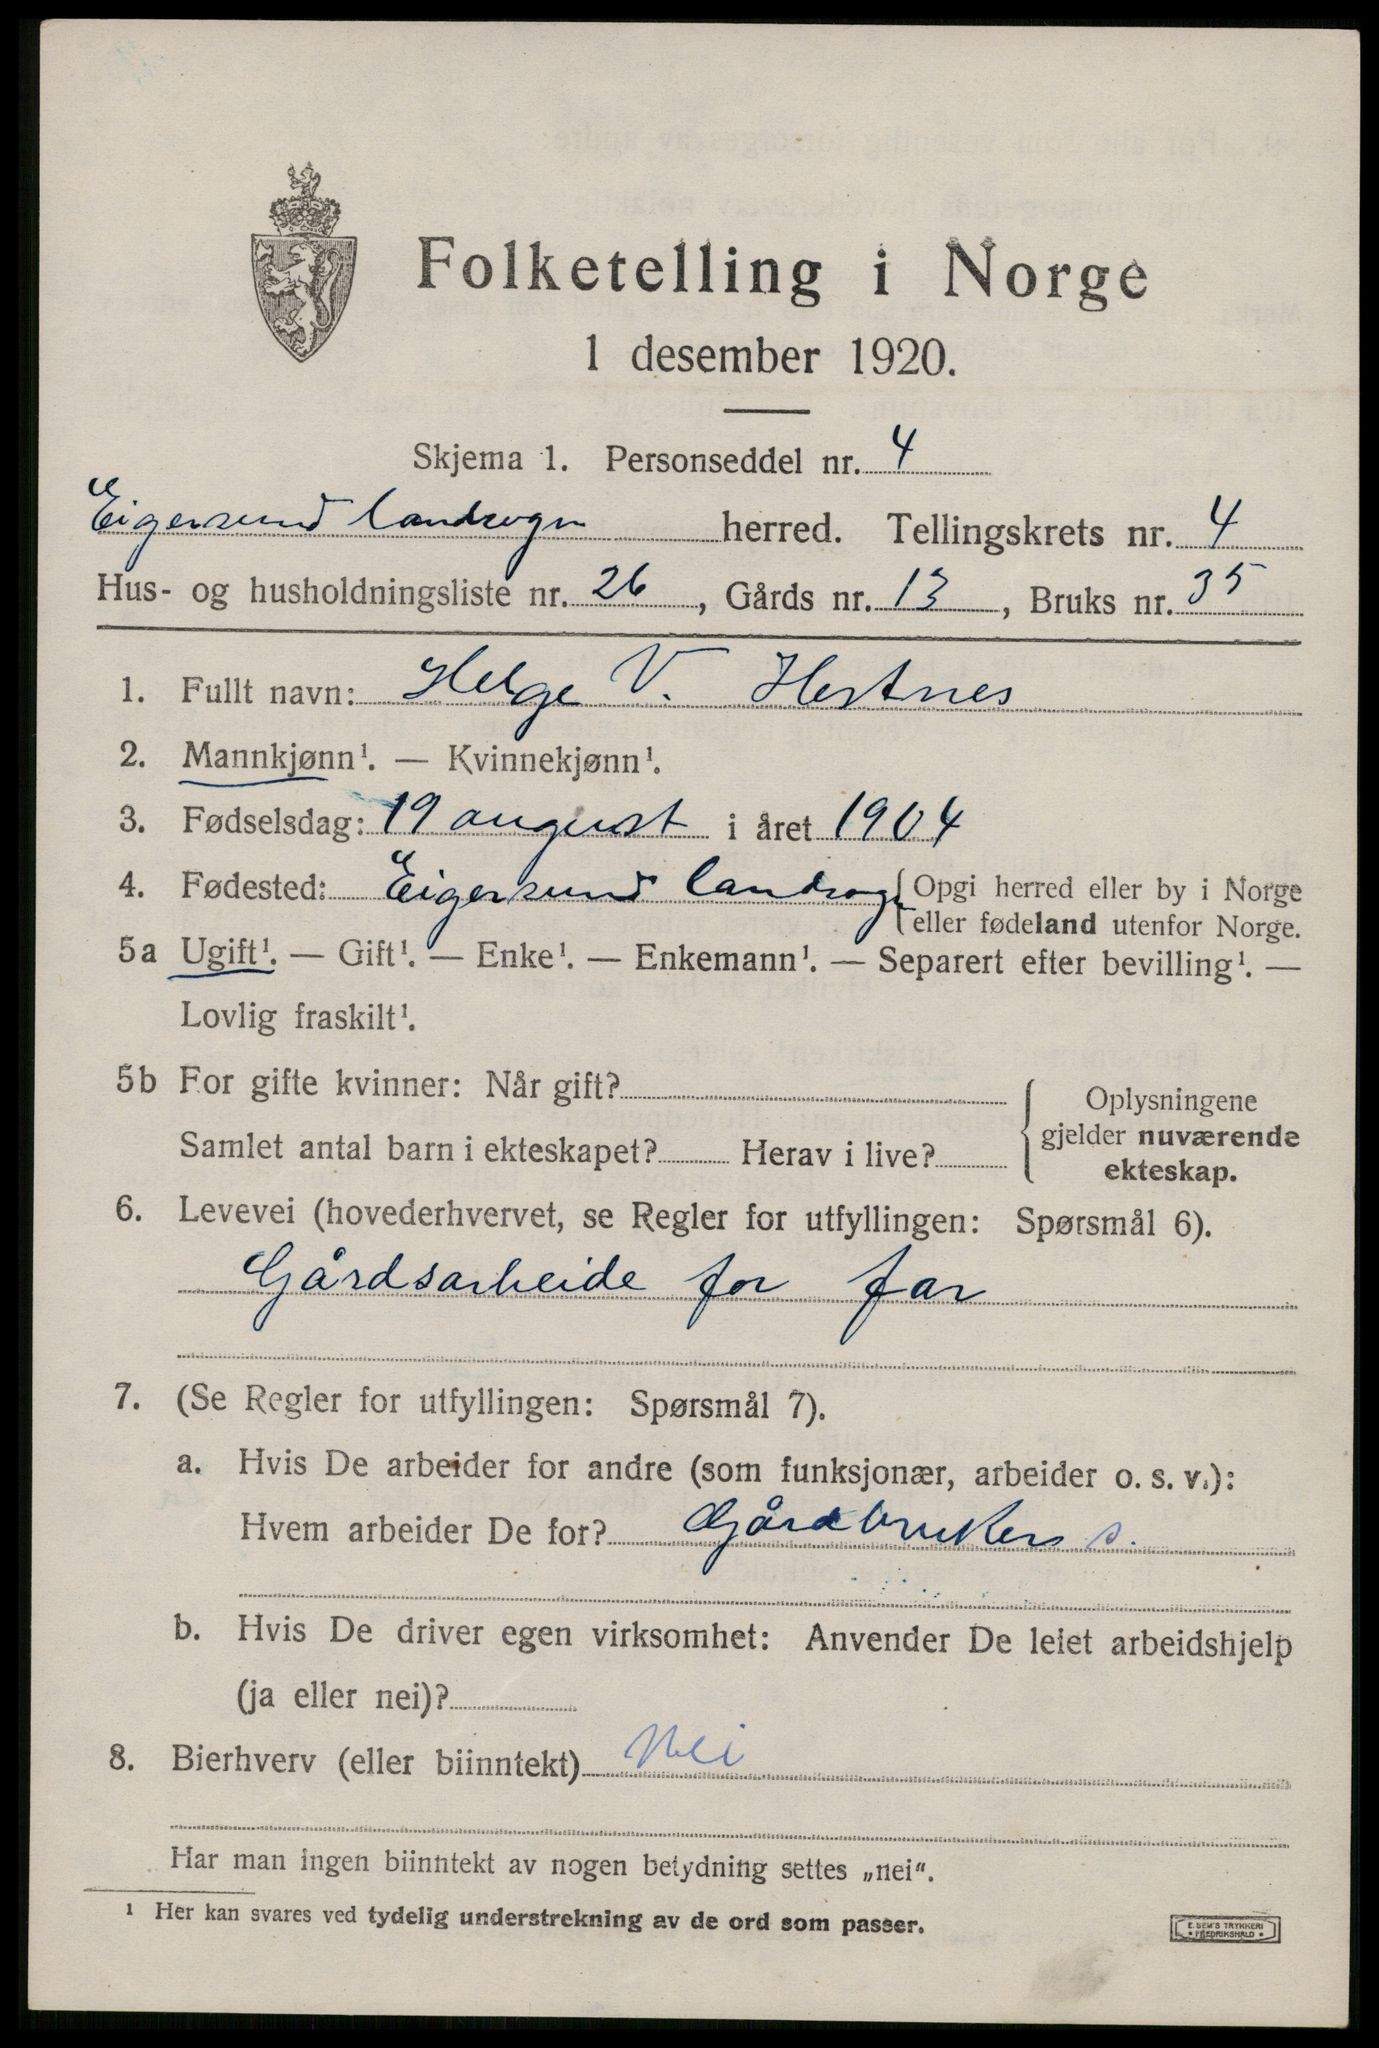 Folketelling i Norge
1 desember 1920.
Skjema 1. Personseddel nr. 4
Eigersund landsogn herred. Tellingskrets nr. 4
Hus- og husholdningsliste nr. 26, Gårds nr. 13, Bruks nr. 35
1. Fullt navn: Helge V. Hestnes
2. Mannkjønn¹. — Kvinnekjønn¹.
3. Fødselsdag: 19 august i året 1904
4. Fødested: Eigersund landsogn {Opgi herred eller by i Norge
eller fødeland utenfor Norge.
5a Ugift¹. — Gift¹. — Enke¹. — Enkemann¹. — Separert efter bevilling¹. —
Lovlig fraskilt¹.
5b For gifte kvinner: Når gift?
Samlet antal barn i ekteskapet? Herav i live?
Oplysningene
gjelder nuværende
ekteskap.
6. Levevei (hovederhvervet, se Regler for utfyllingen: Spørsmål 6).
Gårdsarbeide for far
7. (Se Regler for utfyllingen: Spørsmål 7).
a. Hvis De arbeider for andre (som funksjonær, arbeider o. s. v.):
Hvem arbeider De for? Gårdbrukers s.
b. Hvis De driver egen virksomhet: Anvender De leiet arbeidshjelp
(ja eller nei)?
8. Bierhverv (eller biinntekt) Nei
Har man ingen biinntekt av nogen betydning settes „nei“.
¹ Her kan svares ved tydelig understrekning av de ord som passer.
E. SEM'S TRYKKERI
• FREDRIKSHALD •